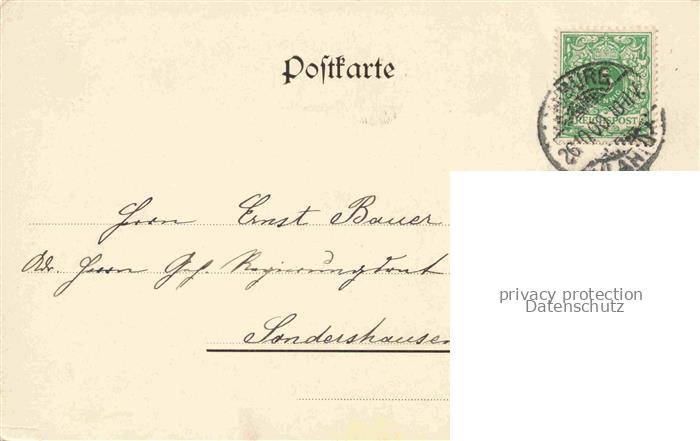 Postkarte
REICHSPOST
BURG
LAHN
Herrn Ernst Bauer
Adr. Herrn Geh. Regierungsrat
Sondershausen
privacy protection
Datenschutz